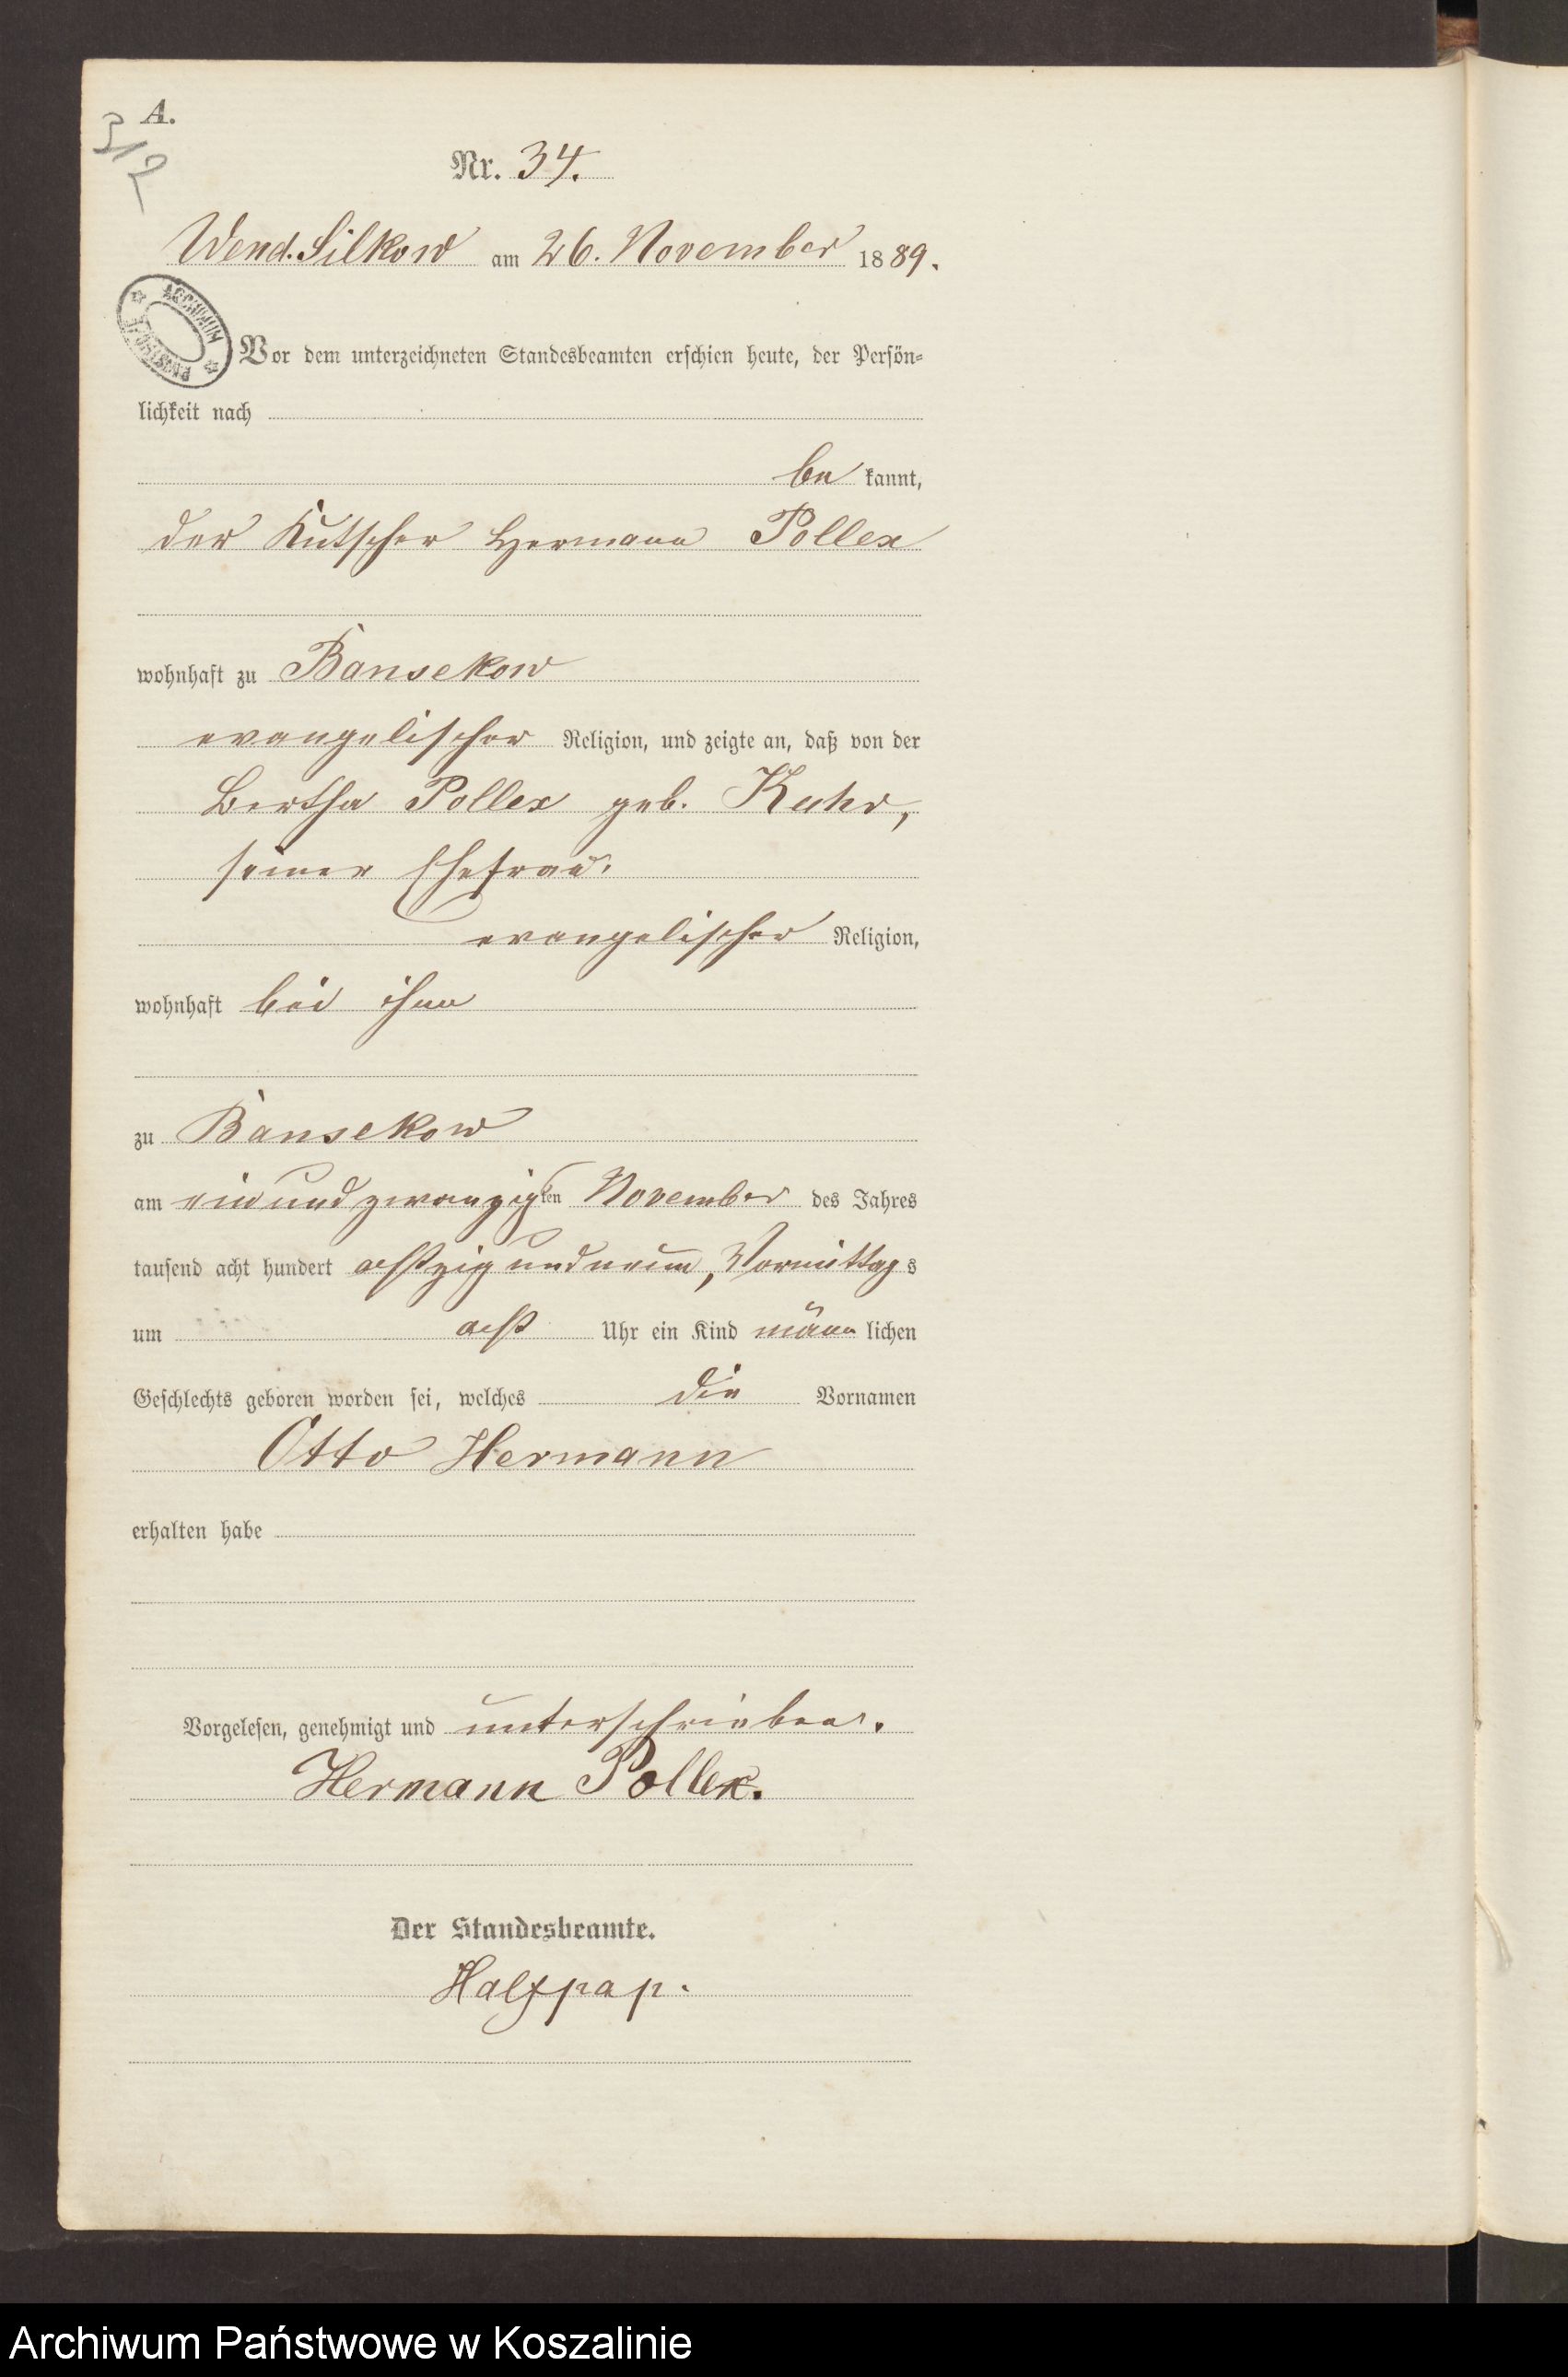 A.
Nr. 34.
Wend. Silkow am 26. November 1889.
ARCHIWUM
PAŃSTWOWE
Vor dem unterzeichneten Standesbeamten erschien heute, der Persön-
lichkeit nach
be kannt,
der Kutscher Hermann Pollex
wohnhaft zu Bansekow
evangelischer Religion, und zeigte an, daß von der
Bertha Pollex geb. Kuhr,
seiner Ehefrau,
evangelischer Religion,
wohnhaft bei ihm
zu Bansekow
am einundzwanzigten November des Jahres
tausend acht hundert achtzig und neun, Vormittags
um acht Uhr ein Kind männlichen
Geschlechts geboren worden sei, welches die Vornamen
Otto Hermann
erhalten habe
Vorgelesen, genehmigt und unterschrieben.
Hermann Pollex.
Der Standesbeamte.
Halfpap.
Archiwum Państwowe w Koszalinie